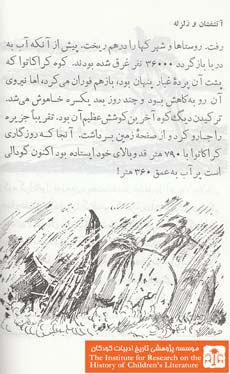 آتشفشان و زلزله
رفت. روستاها و شهرکها را درهم ریخت. پیش از آنکه آب به
دریا بازگردد ۳۶۰۰۰ نفر غرق شده بودند. کوه کراکاتوا که
پشت آن پردهٔ غبار پنهان بود، بازهم فوران می‌کرد، اما نیروی
آن رو به کاهش بود و چند روز بعد یکسره خاموش می‌شد.
ترکیدن دیگ کوه آخرین کوشش عظیم آن بود. تقریبا جزیره
را جارو کرد و از صفحهٔ زمین برداشت. آنجا که روزگاری
کراکاتوا با ۷۹۰ متر قد و بالای خود ایستاده بود اکنون گودالی
است پر آب به عمق ۳۶۰ متر!
مؤسسه پژوهشی تاریخ ادبیات کودکان
The Institute for Research on the
History of Children's Literature